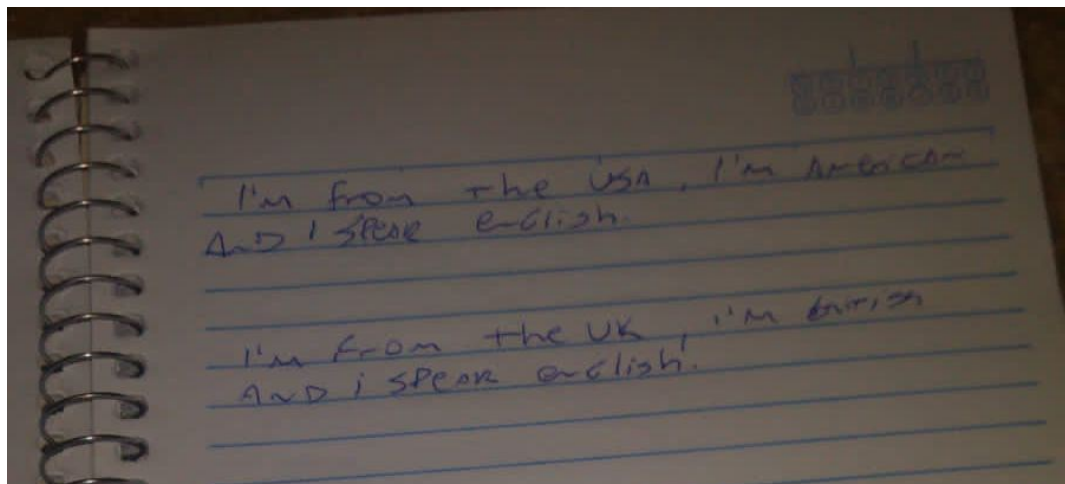 I'm from the USA, I'm American
AND I SPEAK english.
I'm from the UK, i'm british
AND i SPEAK english.